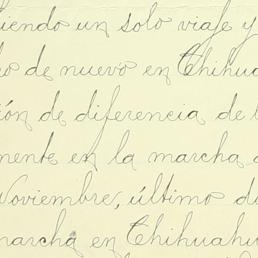 iendo un solo viaje y
o de nuevo en Chihua
ión de diferencia de l
mente en la marcha
Noviembre, último d
marcha en Chihuahu